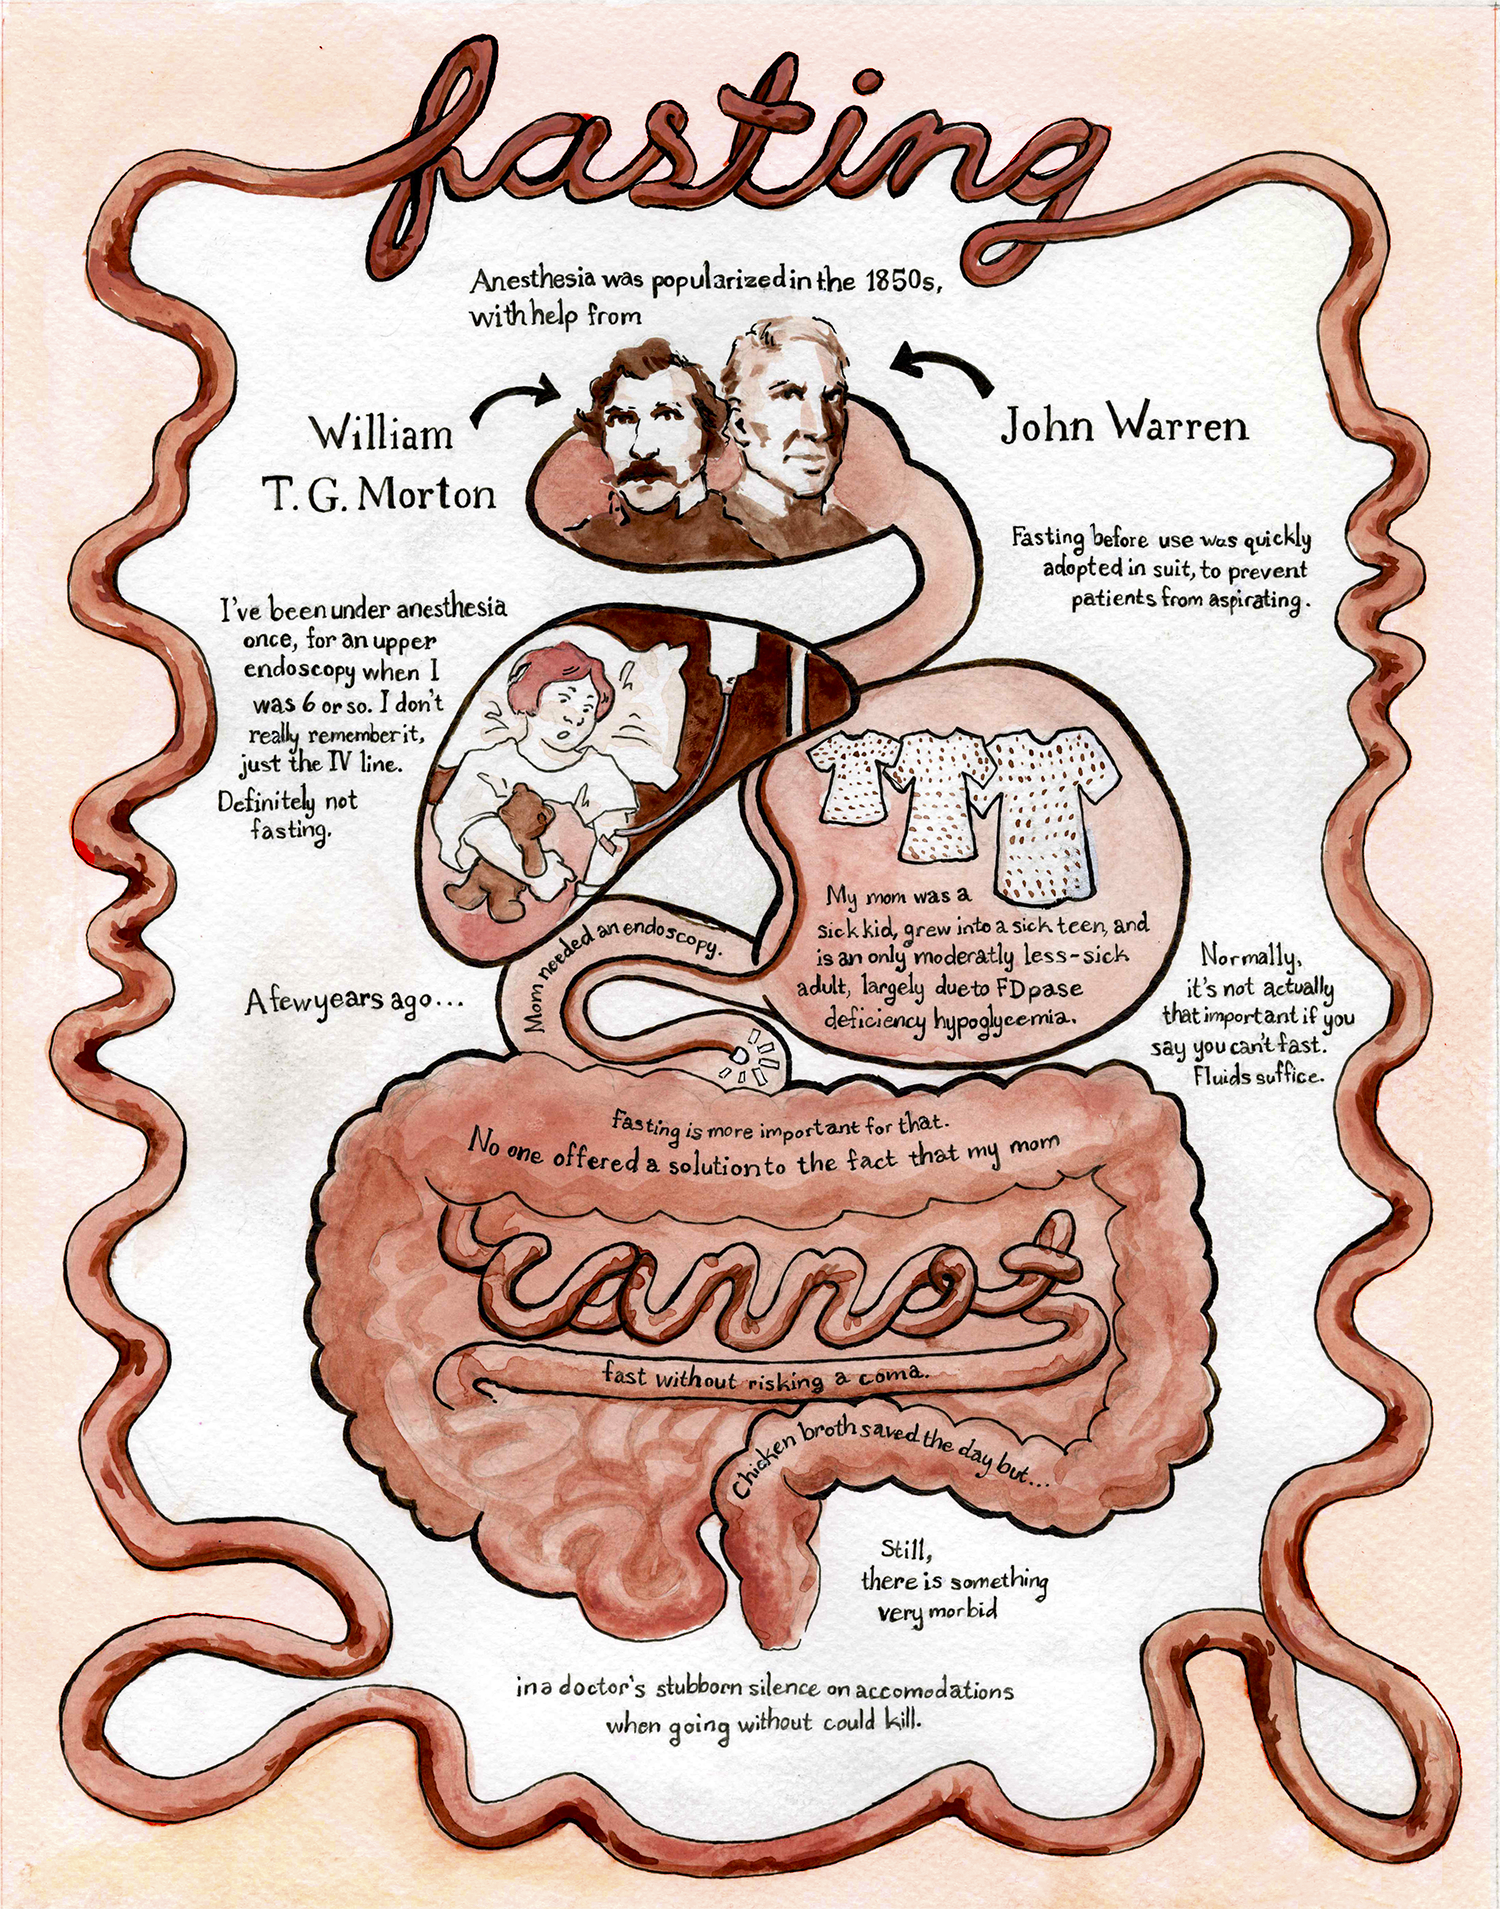 fasting
Anesthesia was popularized in the 1850s,
with help from
William
T. G. Morton
John Warren
Fasting before use was quickly
adopted in suit, to prevent
patients from aspirating.
I've been under anesthesia
once, for an upper
endoscopy when I
was 6 or so. I don't
really remember it,
just the IV line.
Definitely not
fasting.
My mom was a
sick kid, grew into a sick teen, and
is an only moderatly less-sick
adult, largely due to FDpase
deficiency hypoglycemia.
Normally,
it's not actually
that important if you
say you can't fast.
Fluids suffice.
A few years ago...
Mom needed an endoscopy.
Fasting is more important for that.
No one offered a solution to the fact that my mom
cannot
fast without risking a coma.
Chicken broth saved the day but...
Still,
there is something
very morbid
in a doctor's stubborn silence on accomodations
when going without could kill.